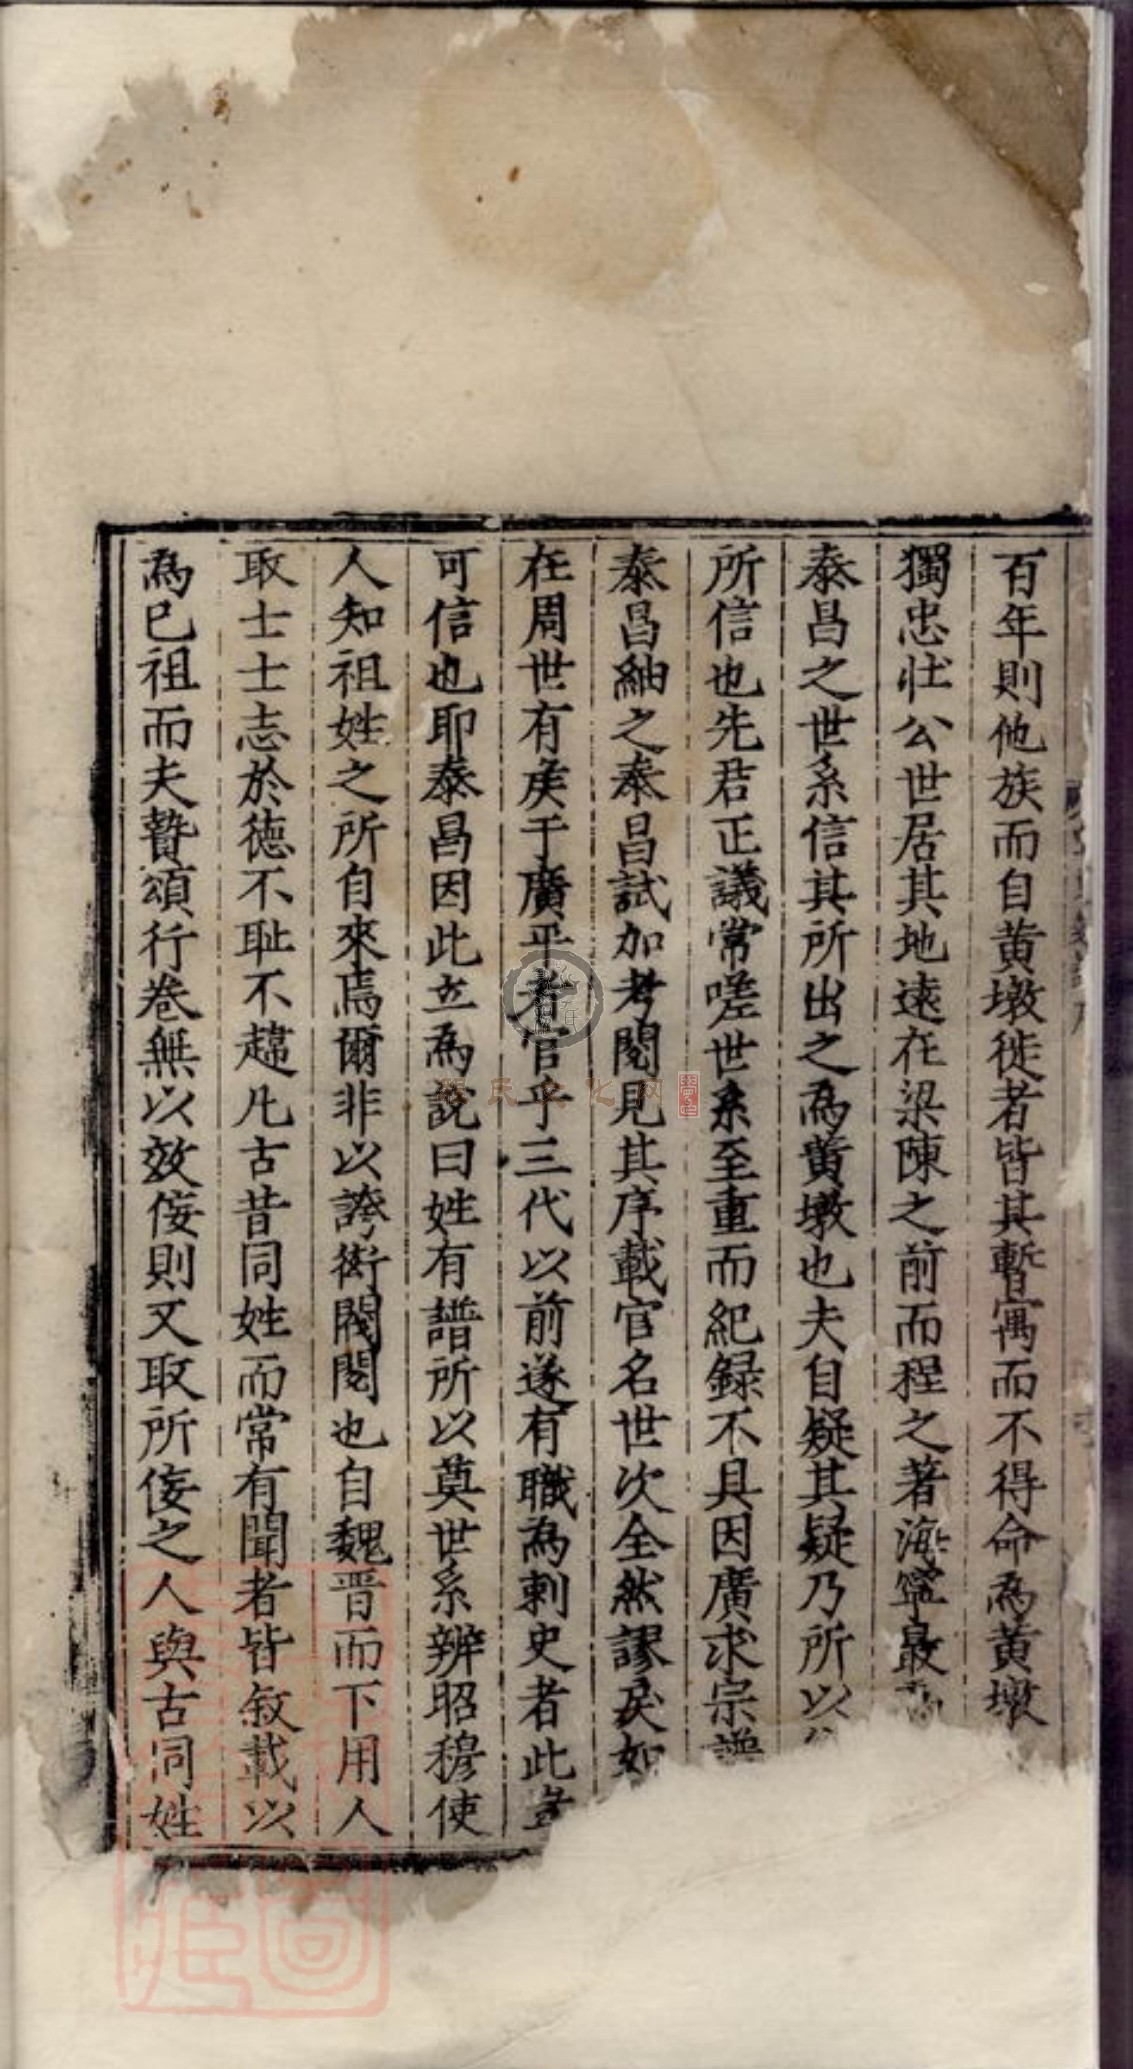 百年則他族而自黄墩徙者皆其暫寓而不得命為黄墩
獨忠壮公世居其地遠在梁陳之前而程之著海寧最
泰昌之世系信其所出之為黄墩也夫自疑其疑乃所以
所信也先君正議常嗟世系至重而紀録不具因廣求宗譜
泰昌紬之泰昌試加考閱見其序載官名世次全然謬戾如
在周世有矦于廣平者官乎三代以前遂有職為刺史者此
可信也耶泰昌因此立為說曰姓有譜所以奠世系辨昭穆使
人知祖姓之所自來焉爾非以誇衒閥閱也自魏晋而下用人
取士士志於德不耻不趨凡古昔同姓而常有聞者皆叙載以
為已祖而夫贊頌行卷無以效侫則又取所侫之人與古同姓
居民文化网